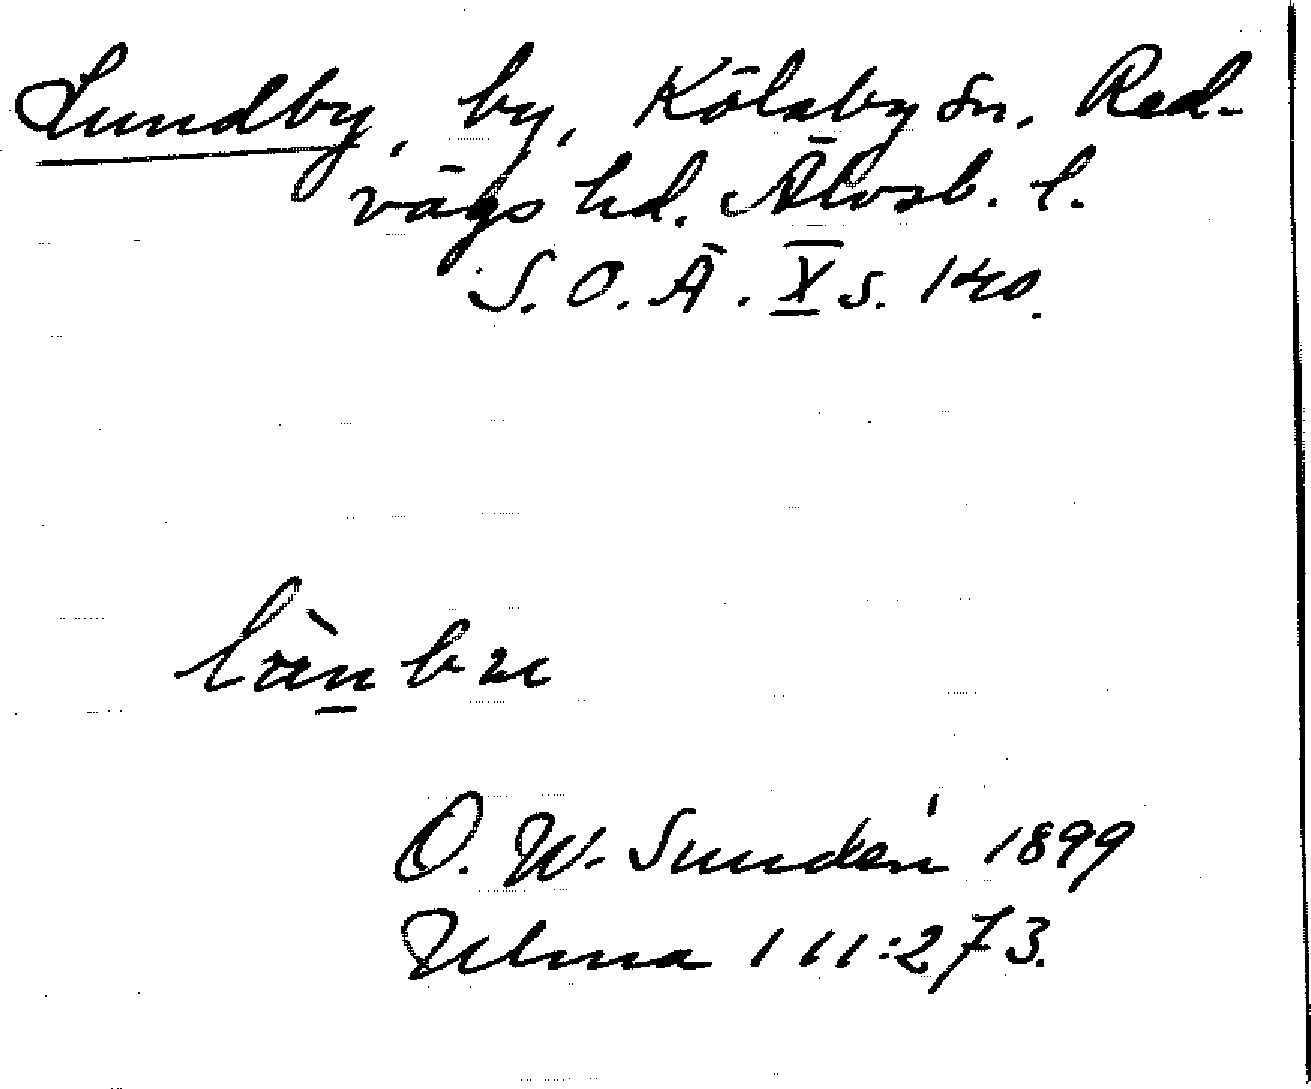 Lundby, by, Kölaby sn, Red-
vägs hd. Älvsb. l.
S. O. Ä. X s. 140.
O. W. Sundén 1899
Ulma 111:273.